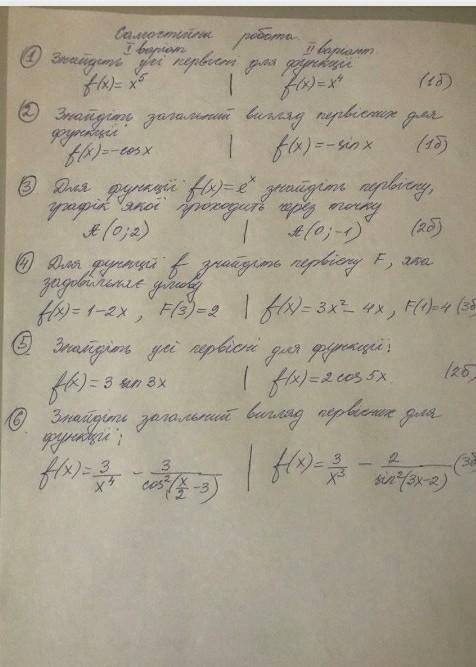 Самостійна робота.
I варіант II варіант
① Знайдіть усі первісні для функції
f(x) = x⁵ | f(x) = x⁴ (1б)
② Знайдіть загальний вигляд первісних для
функції
f(x) = -cosx | f(x) = -sinx (1б)
③ Для функції f(x) = eˣ знайдіть первісну,
графік якої проходить через точку
A (0; 2) | A (0; -1) (2б)
④ Для функції f знайдіть первісну F, яка
задовільняє умову
f(x) = 1-2x , F(3) = 2 | f(x) = 3x² - 4x , F(1) = 4 (3б
⑤ Знайдіть усі первісні для функції:
f(x) = 3 sin 3x | f(x) = 2 cos 5x (2б
⑥ Знайдіть загальний вигляд первісних для
функції;
f(x) = 3/x⁴ - 3/cos²(x/2 - 3) | f(x) = 3/x³ - 2/sin²(3x-2) (3б